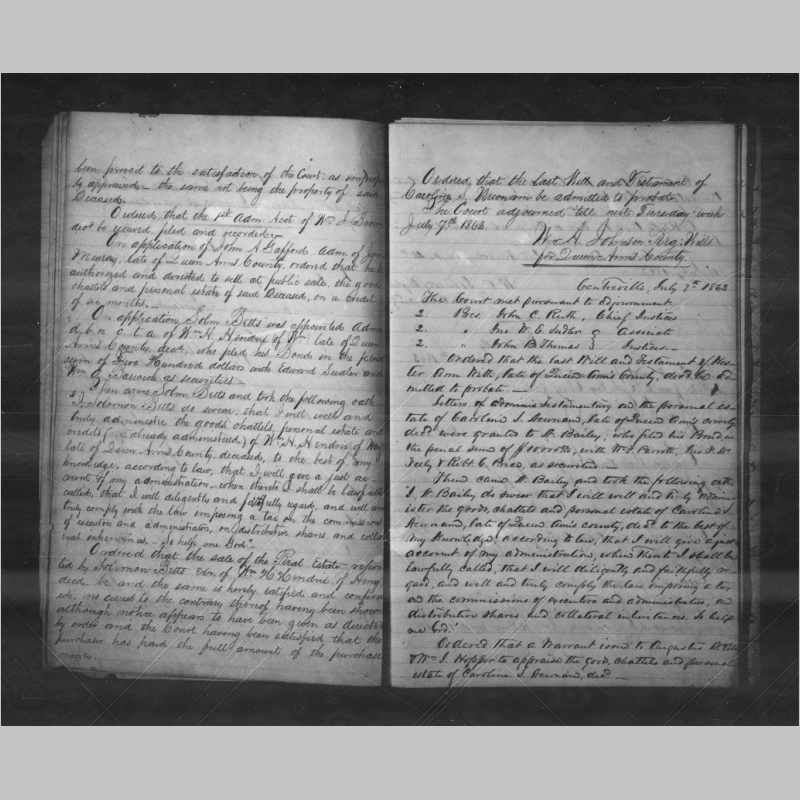 been proved to the satisfaction of the Court: as son
ly appraised – the same not being the property of said
Deceased.
Ordered, that the 1st Adm. Acct. of Wm J.
dec'd be passed, filed and recorded.
On application of John A Gafford adm. of
Murray, late of Queen Anns County, ordered that he be
authorized and directed to sell at public sale, the goods
chattels and personal estate of said deceased, on a credit
of six months.
On application John Betts was appointed Adm
d. b. n. c. t. a of Wm H. Hendrix of Wm. late of Queen
Anns County, decd, who filed his Bond in the penal
sum of Five Hundred dollars with Edward Sudler and
Wm C. as securities
Then came John Betts and took the following oath
I, Solomon Betts do swear, that I will well and
truly administer the goods chattels, personal estate and
credits (un already administered) of Wm H. Hendrix of Wm
late of Queen Anns County, deceased, to the best of my
knowledge, according to law, that I will give a just ac-
count of my administration, when thereto I shall be lawfully
called, that I will diligently and faithfully regard, and well and
truly comply with the law imposing a tax on the commissions
of executors and administrators, on distributive shares and collat
eral inheritances. So help me God."
Ordered that the sale of the Real Estate repor
ted by Solomon Betts Exr. of Wm H Hendrix of Henry
decd. be and the same is hereby ratified and confirmed
no cause to the contrary thereof having been shown
although notice appears to have been given as directed
by order and the Court having been satisfied that the
purchaser has paid the full amount of the purchase
money.
Ordered, that the Last Will and Testament of
Caroline S. Newnam be admitted to probate.
The Court adjourned till next Tuesday week
July 7th 1863.
Wm A. Johnson Reg: Wills
for Queen Anns County.
Centreville, July 7th 1863
The Court met pursuant to adjournment
Pres. John C. Ruth, Chief Justice
" Jno W. E. Sudler } Associate
" John B Thomas } Justices.
Ordered that the last Will and Testament of Hes-
ter Ann Betts, late of Queen Ann's County, decd. be ad-
mitted to probate. —
Letters of administration on the personal es-
tate of Caroline S. Newnam, late of Queen Ann's county
decd. were granted to W. Bailey, who filed his Bond in
the penal sum of with Wm. Parrott,
& Robt C. as securities. —
Then came W. Bailey and took the following oath
'I, W. Bailey do swear that I will well and truly admin-
ister the goods, chattels and personal estate of Caroline S
Newnam, late of Queen Ann's county, decd. to the best of
my knowledge, according to law, that I will give a just
account of my administration, when thereto I shall be
lawfully called, that I will diligently and faithfully re-
gard, and well and truly comply the law imposing a tax
on the commissions of executors and administrators, on
distributive shares and collateral inheritances. So help
me God.'
Ordered that a Warrant issue to Augustus
& Wm. J. Hopper to appraise the good, chattels and personal
estate of Caroline S. Newnam, decd. —